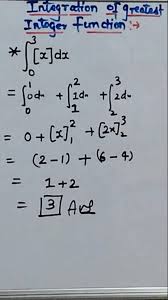 Integration of greatest
Integer function :-
* ∫₀³ [x]dx
= ∫₀¹ 0dx + ∫₁² 1dx + ∫₂³ 2dx
= 0 + [x]₁² + [2x]₂³
= (2-1) + (6-4)
= 1+2
= 3 Ans